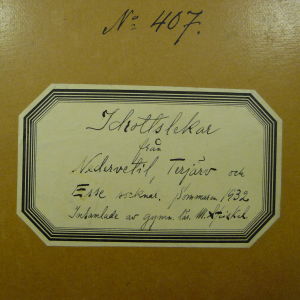 No 407.
Idrottslekar
från
Nedervetil, Terjärv och
Esse socknar. Sommaren 1932
Insamlade av gymn. lär. M.